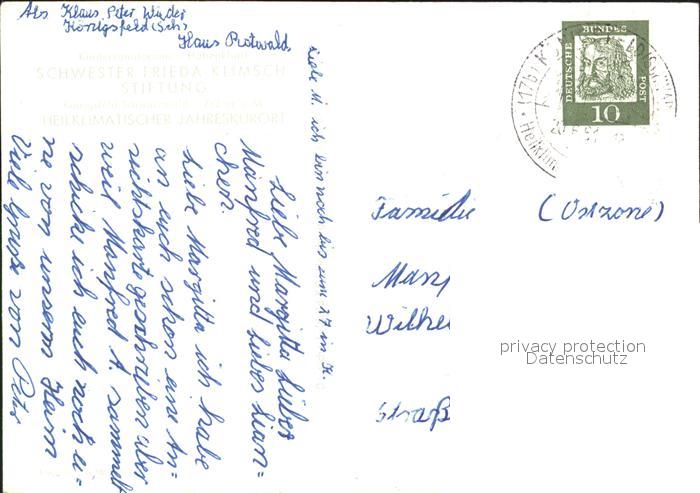 Abs Klaus Peter Winder
Königsfeld (Sch)
Haus Rotwald
Kindersanatorium - Hohenkurort
SCHWESTER FRIEDA KLIMSCH
STIFTUNG
Königsfeld
HEILKLIMATISCHER JAHRESKURORT
Liebe M. ich bin noch bis zum 27 in K.
Liebe Margitta Lieber
Manfred und liebes
chen.
Liebe Margitta ich habe
an euch schon eine An=
sichtskarte geschrieben aber
weil Manfred A. sammelt
schicke ich euch noch ei=
ne von unserem Heim
Viele Grüsse von Peter
DEUTSCHE
BUNDES
POST
10
(17b)
Heilklim
Familie (Ostzone)
Man
Wilhel
Straß
privacy protection
Datenschutz